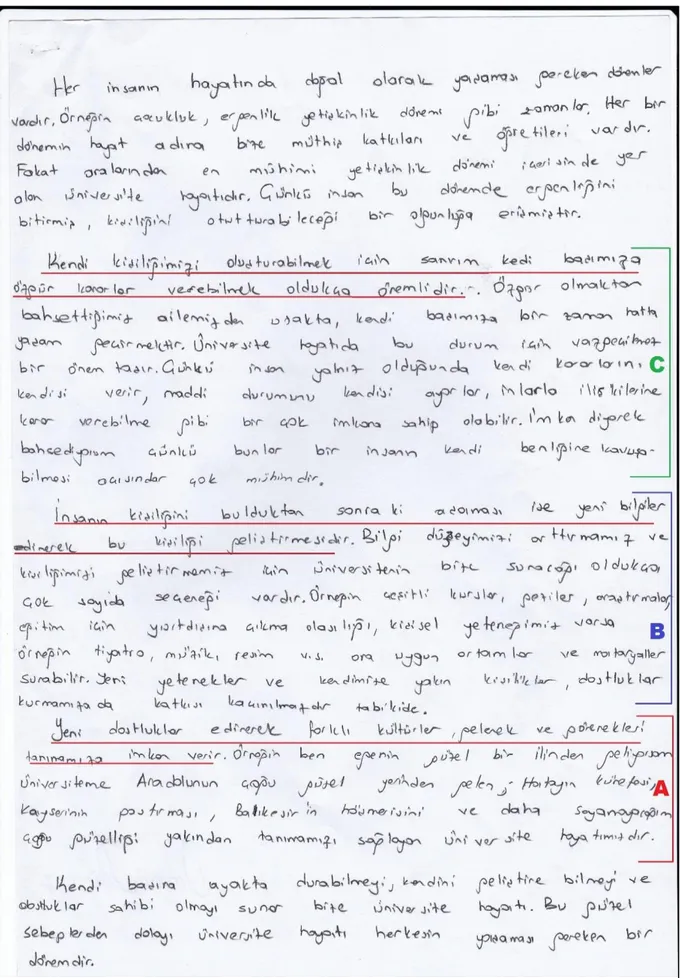 Her insanın hayatında doğal olarak yaşaması gereken dönemler
vardır. Örneğin çocukluk, ergenlik yetişkinlik dönemi gibi zamanlar. Her bir
dönemin hayat adına bize müthiş katkıları ve öğretileri vardır.
Fakat aralarından en mühimi yetişkinlik dönemi içerisinde yer
alan üniversite hayatıdır. Çünkü insan bu dönemde ergenliğini
bitirmiş, kişiliğini oturtturabileceği bir olgunlığa erişmiştir.
Kendi kişiliğimizi oluşturabilmek için sanrım kedi başımıza
özgür kararlar verebilmek oldukça önemlidir. Özgür olmaktan
bahsettiğimiz ailemizden uzakta, kendi başımıza bir zaman hatta
yaşam geçirmektir. Üniversite hayatıda bu durum için vazgeçilmez
bir önem taşır. Çünkü insan yalnız olduğunda kendi kararlarını
C
kendisi verir, maddi durumunu kendisi ayarlar, inlarla ilişkilerine
karar verebilme gibi bir çok imkana sahip olabilir. İmkan diyerek
bahsediyorum çünkü bunlar bir insanın kendi benliğine kavuşa-
bilmesi açısından çok mühimdir.
İnsanın kişiliğini bulduktan sonra ki aşaması ise yeni bilgiler
edinerek bu kişiliği geliştirmesidir. Bilgi düzeyimizi arttırmamız ve
kişiliğimizi geliştirmemiz için üniversitenin bize sunacağı oldukça
çok sayıda seçeneği vardır. Örneğin çeşitli kurslar, geziler, araştırmalar,
eğitim için yurtdışına çıkma olasılığı, kişisel yeteneğimiz varsa
B
örneğin tiyatro, müzik, resim v.s. ona uygun ortamlar ve materyaller
sunabilir. Yeni yetenekler ve kendimize yakın kişilikler, dostluklar
kurmamıza da katkısı kaçınılmazdır tabikide.
Yeni dostluklar edinerek farklı kültürler, gelenek ve görenekleri
tanımamıza imkan verir. Örneğin ben egenin güzel bir ilinden geliyorsam
üniversiteme Anadolunun çoğu güzel yerinden gelen; Hatayın künefesi,
A
Kayserinin pastırması, Balıkesirin höşmerisini ve daha sayamayacağım
çoğu güzelliği yakından tanımamızı sağlayan üniversite hayatımızdır.
Kendi başına ayakta durabilmeyi, kendini geliştire bilmeyi ve
dostluklar sahibi olmayı sunar bize üniversite hayatı. Bu güzel
sebeplerden dolayı üniversite hayatı herkesin yaşaması gereken bir
dönemdir.